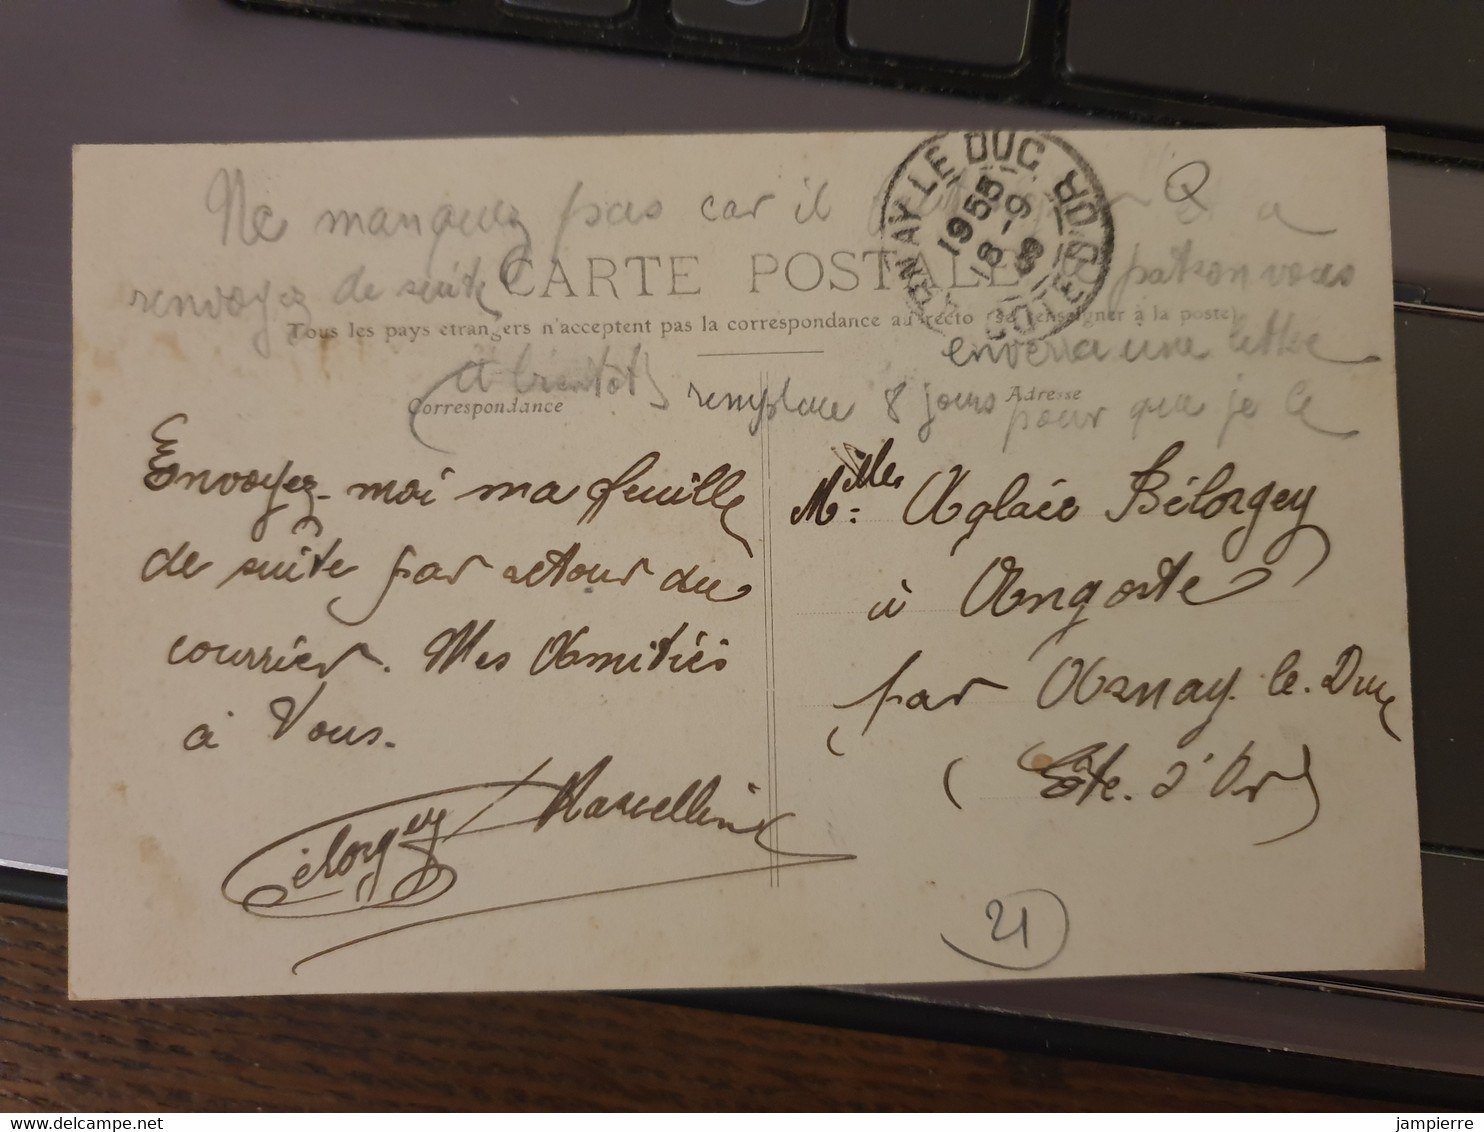 Ne manquez pas car il
Q
a
renvoyez de suite
patron vous
CARTE POSTALE
Tous les pays étrangers n'acceptent pas la correspondance au recto (se renseigner à la poste)
enverra une lettre
A bientôt
remplace 8 jours pour que je le
Correspondance
Adresse
ARNAY LE DUC
COTE D'OR
1955
18 - 9
Envoyez-moi ma feuille
de suite par retour du
courrier. Mes Amitiés
à Vous.
Bélorgey Marcellin
Melles Aglaée Bélorgey
à Angoste
par Arnay-le-Duc
(Côte-d'Or)
21
jampierre